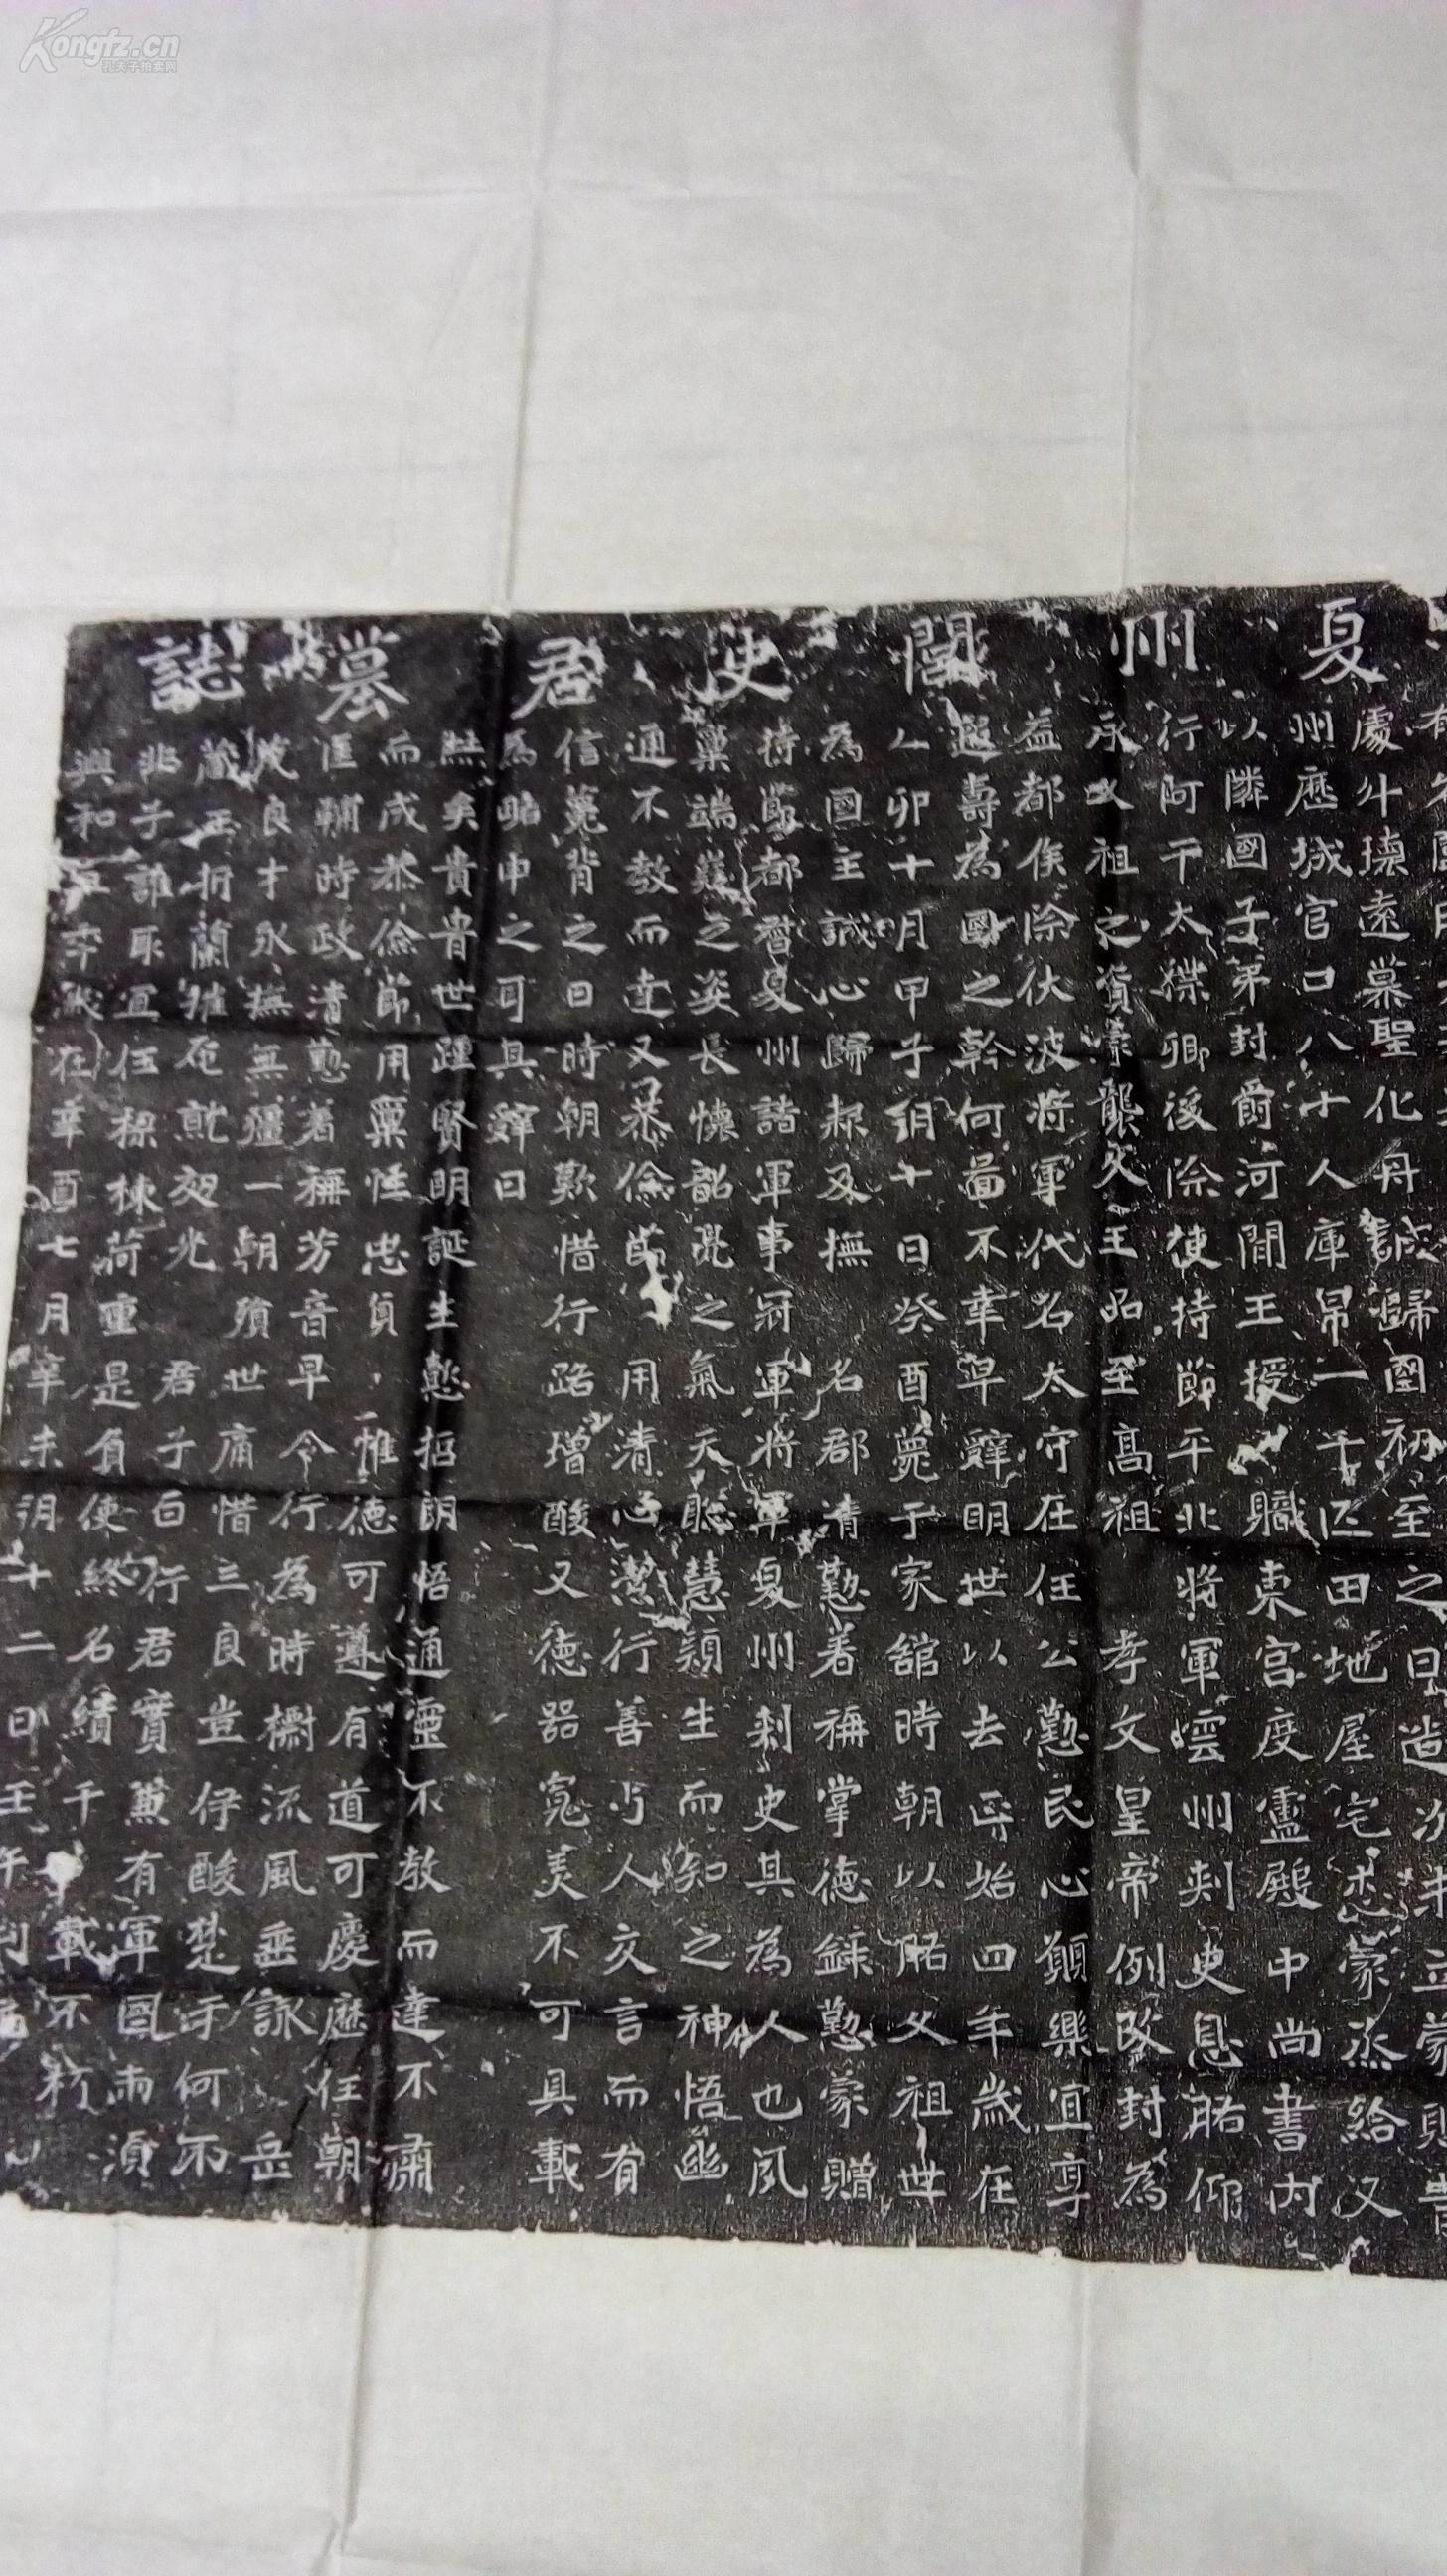 Kongfz.cn
孔夫子拍卖网
夏州閻史君墓誌
處斗瓌遠慕聖化丹誠歸國初至之日尚
州歷城官口八十人庫帛一千匹田地屋宅悉蒙烝給又
以隣國子弟封爵河間王授職東宮度盧殿中尚書內
行阿干太僕卿後除使持節平北將軍雲州刺史息祐仰
承乂祖之資襲父王品至高祖孝文皇帝例改封為
益都侯除伏波將軍代名太守在任公懃民心願樂宜享
遐壽為國之幹何啚不幸早辭明世以去正始四年歲在
卯十月甲子朔十日癸酉薨于家館時朝以祐父祖世
為國主誠心歸款及撫名郡清懃著稱掌德錄懃蒙贈
持節都督夏州諸軍事冠軍將軍夏州刺史其為人也夙
稟端嶷之姿長懷韶亮之氣天聡慧穎生而知之神悟幽
通不教而達又恭儉節用清心潔行善与人交言而有
信薨背之日時朝歎惜行路增酸又德器寬美不可具載
為略申之可具辭曰
矣貴胄世踵賢明誕生懃招朗悟通靈不教而達不肅
而成恭儉節用稟性忠貞惟德可遵有道可慶歷任朝
匡輔時政清懃著稱芳音早令行為時櫥流風垂詠岳
良才永撫無疆一朝殞世痛惜三良豈伃酸楚于何不
蔵玉折蘭摧夜光君子白行君實兼有軍國雨湏
非子誰取宜任樑棟荷重是負使終名績千載不朽
興和二年歲在辛酉七月辛未朔十二日壬午